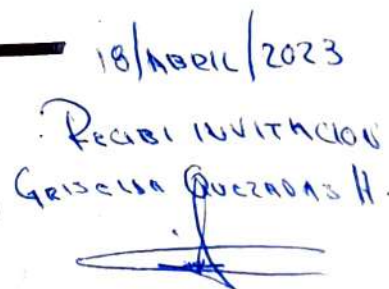 18/ABRIL/2023
RECIBI INVITACION
GRISELDA QUEZADAS H.